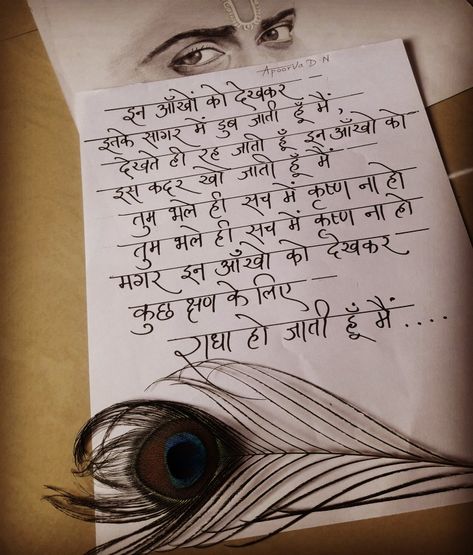 Apoorva D N
इन आँखों को देखकर -
इनके सागर में डुब जाती हूँ मैं,
देखते ही रह जाती हूँ इन आँखो को
इस कदर खो जाती हूँ मैं
तुम भले ही सच में कृष्ण ना हो
तुम भले ही सच में कृष्ण ना हो
मगर इन आँखो को देखकर -
कुछ क्षण के लिए
राधा हो जाती हूँ मैं ....